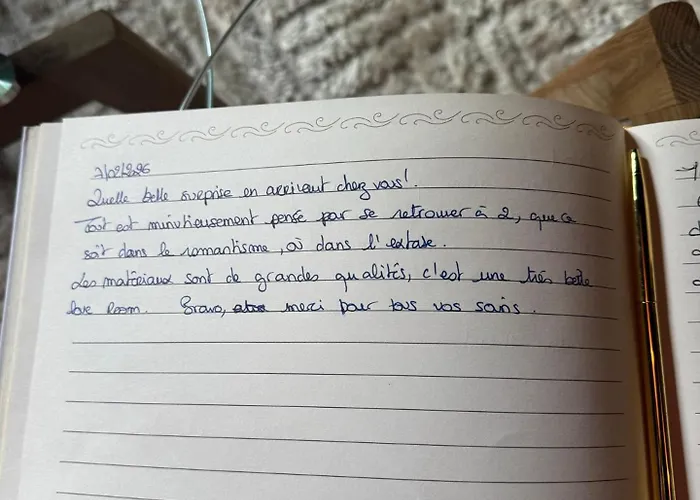 7/02/2026
Quelle belle surprise en arrivant chez vous !
Tout est minutieusement pensé par se retrouver à 2, que ce
soit dans le romantisme, où dans l'extase.
Les matériaux sont de grandes qualités, c'est une très belle
love Room. Bravo, merci pour tous vos soins.